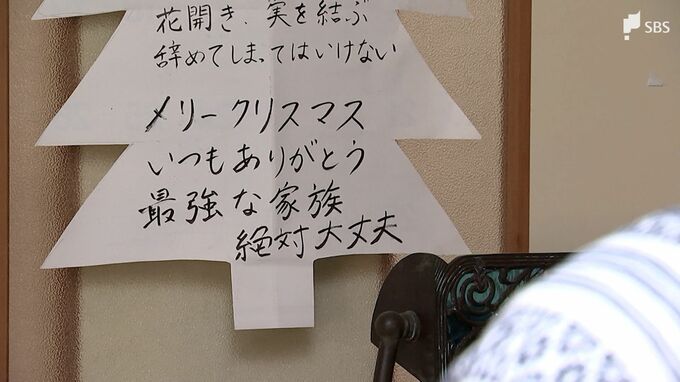 SBS
花開き、実を結ぶ
辞めてしまってはいけない
メリークリスマス
いつもありがとう
最強な家族
絶対大丈夫